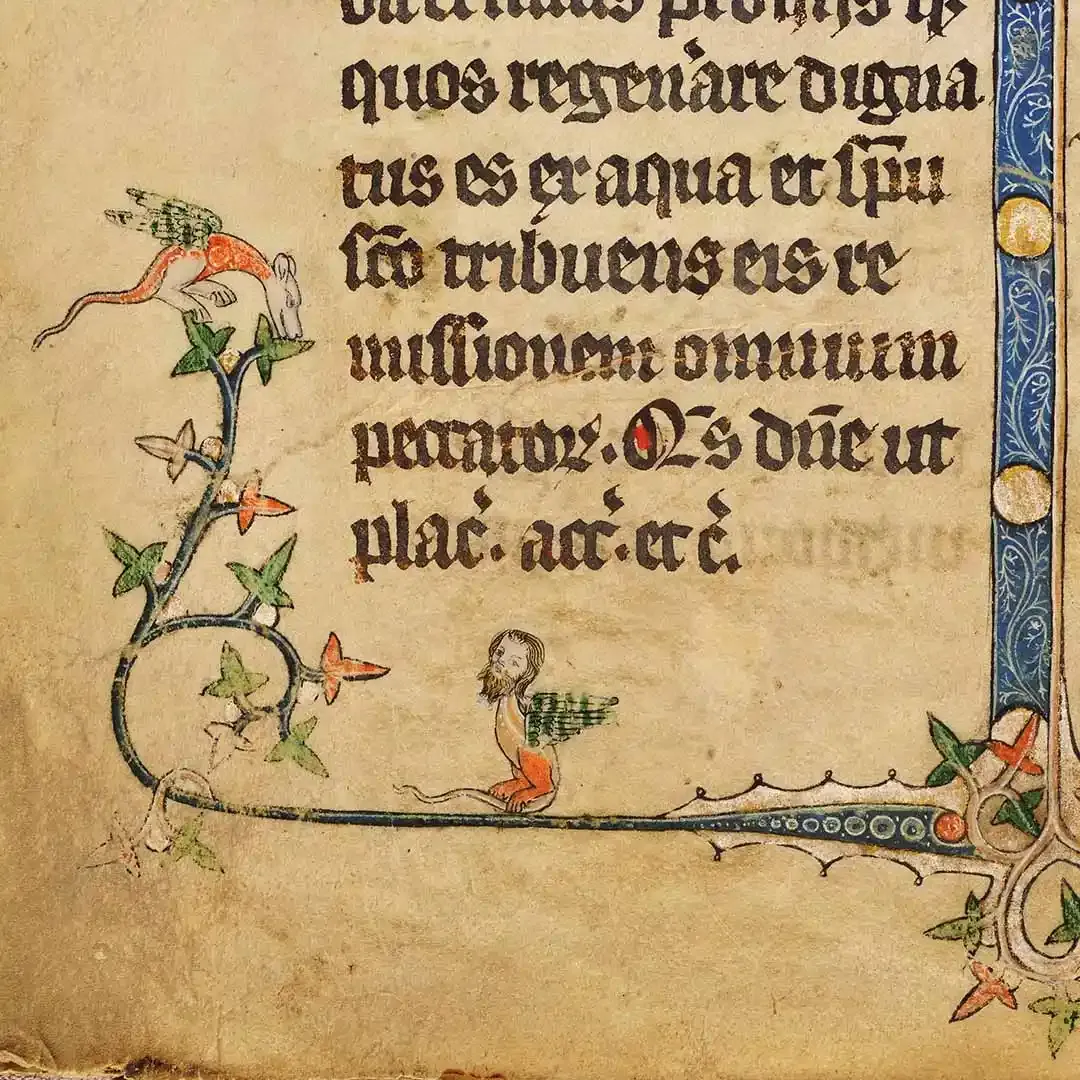 pro hijs
quos regen'are digna
tus es ex aqua et sp̄u
sc̄o tribuens eis re
missionem omnium
peccatorꝝ. Q̄s dn̄e ut
plac'. acc'. et c'.